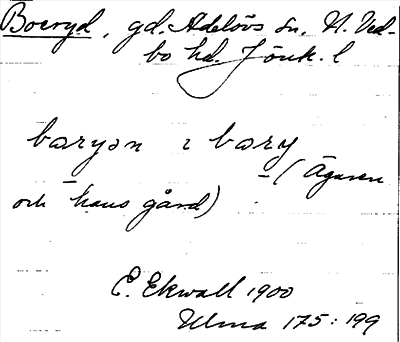 Boeryd, gd. Adelövs sn, N. Ved-
bo hd. Jönk. l
baryən ɩ bary
(Ägaren
och hans gård)
E. Ekwall 1900
Ulma 175:199